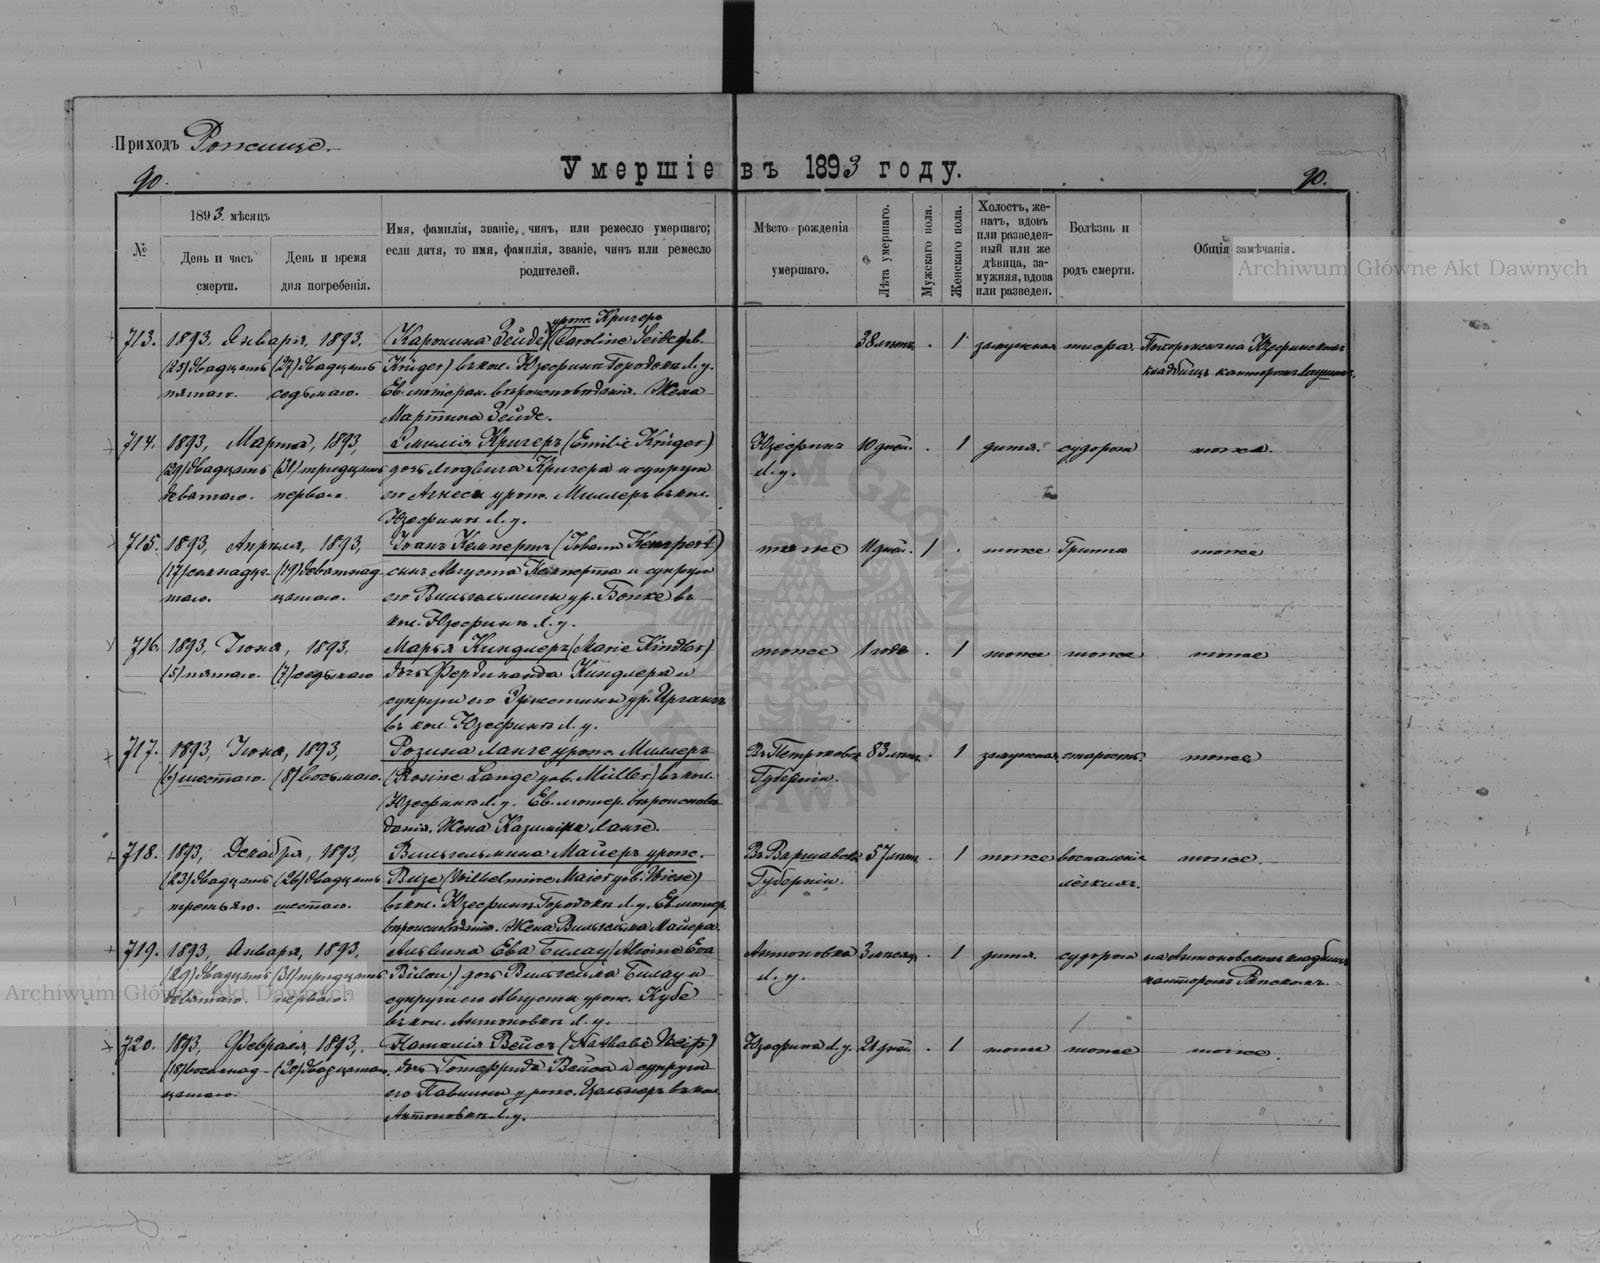 Приходъ Рожище.
90.
Умершіе въ 1893 году.
90.
№
1893 мѣсяцъ
День и часъ смерти.
День и время дня погребенія.
Имя, фамилія, званіе, чинъ, или ремесло умершаго; если дитя, то имя, фамилія, званіе, чинъ или ремесло родителей.
Мѣсто рожденія умершаго.
Лѣта умершаго.
Мужскаго пола.
Женскаго пола.
Холостъ, женатъ, вдовъ или разведенный или же дѣвица, замужняя, вдова или разведен.
Болѣзнь и родъ смерти.
Общія замѣчанія.
Archiwum Główne Akt Dawnych
урож. Кригеръ
713. 1893. Января, 1893. Каролина Зейде (Caroline Seide geb. 38 лѣтъ . 1 замужняя тифа.
(25) двадцать (27) двадцать Krüger) въ кол. Юзефинъ Городокъ Л. у.
пятаго. седьмаго. Ев. лютеран. вѣроисповѣданія. Жена
Мартина Зейде.
714. 1893, Марта, 1893, Эмилія Кригеръ (Emilie Krüger) Юзефинъ 10 дней . 1 дитя. судорога тоже.
(29) двадцать (31) тридцать дочь Людвига Кригера и супруги Л. у.
девятаго. перваго. его Агнесы урож. Миллеръ въ кол.
Юзефинъ Л. у.
715. 1893, Апрѣля, 1893, Іоанъ Кемпертъ (Johann Kempert) тоже 11 дней. 1 . тоже тоже
(17) семнадца- (19) девятнад- сынъ Августа Кемперта и супруги
таго. цатаго. его Вильгельмины ур. Бонке въ
кол. Юзефинъ Л. у.
716. 1893. Іюня, 1893. Марья Киндлеръ (Marie Kindler) тоже 1 годъ . 1 тоже тоже тоже
(5) пятаго. (7) седьмаго дочь Фердинанда Киндлера и
супруги его Эрнестины ур.
въ кол. Юзефинъ Л. у.
717. 1893, Іюня, 1893, Розина Ланге урож. Миллеръ Въ Петрковск. 83 лѣтъ . 1 замужняя старость. тоже
(6) шестаго. (8) восьмаго. (Rosine Lange geb. Müller) въ кол. Губерніи.
Юзефинъ Л. у. Ев. лютер. вѣроисповѣ-
данія. Жена Казиміра Ланге.
718. 1893, Декабря, 1893, Вильгельмина Майеръ урож. Въ Варшавск. 57 лѣтъ . 1 тоже воспаленія тоже.
(23) двадцать (26) двадцать Визе (Wilhelmine Maier geb. Wiese) Губерніи. лёгкихъ.
третьяго. шестаго. въ кол. Юзефинъ Городокъ Л. у. Ев. лютер.
вѣроисповѣданія. Жена Вильгельма Майера.
719. 1893, Января, 1893, Альвина Ева Билау (Alwine Eva Антоновка 3 мѣсяц. 1 дитя. судорога на Антоновскомъ кладбищѣ
(29) двадцать (31) тридцать Bülau) дочь Вильгельма Билау и Л. у. канторомъ
девятаго. перваго. супруги его Августы урож. Кубе
въ кол. Антоновка Л. у.
Archiwum Główne Akt Dawnych
720. 1893, Февраля, 1893, Наталія Вейсъ (Nathalie Weiß) Юзефинъ Л. у. 21 дней. . 1 тоже тоже тоже.
(18) восемнад- (20) двадцатаго. дочь Готфрида Вейса и супруги
цатаго. его Павлины урож. Цельмеръ въ кол.
Антоновка Л. у.